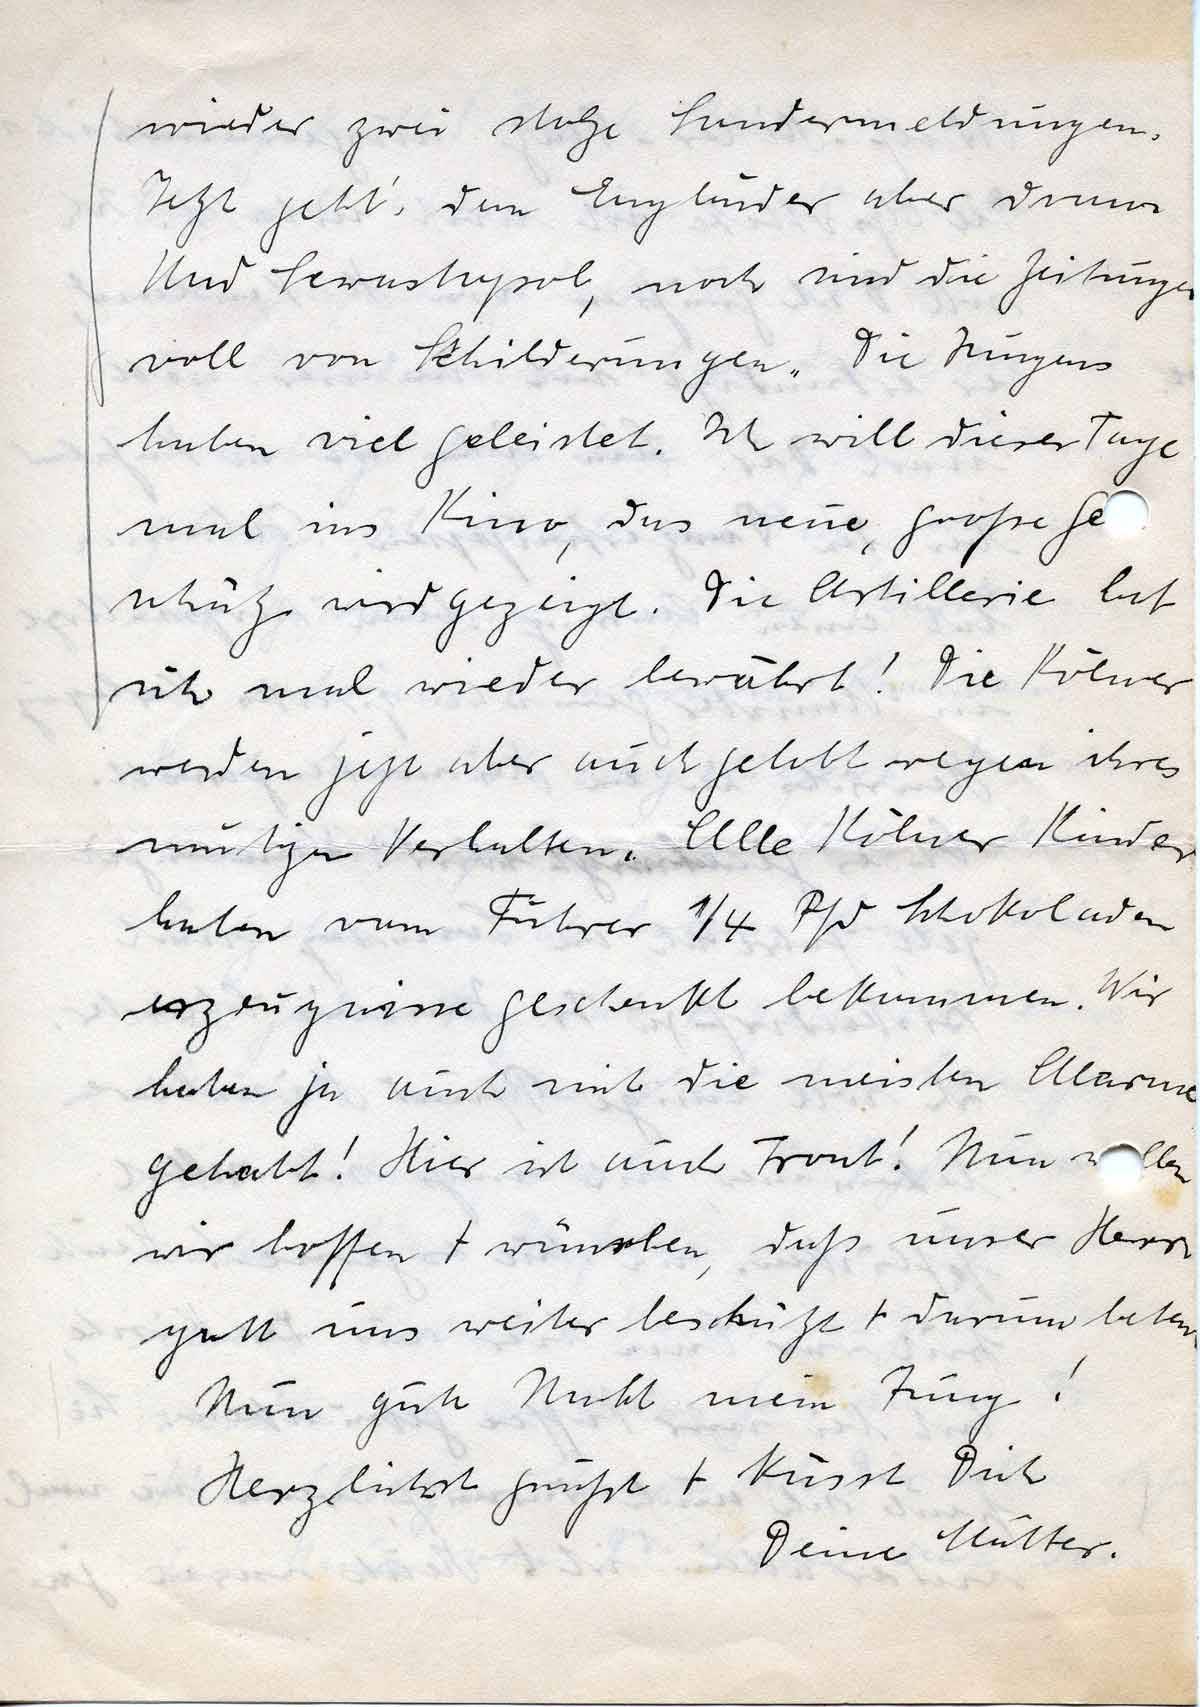 wieder zwei stolze Sondermeldungen.
Jetzt geht's dem Engländer aber dran
Und Sewastopol, noch sind die Zeitungen
voll von Schilderungen. Die Jungens
haben viel geleistet. Ich will dieser Tage
mal ins Kino, das neue, große Ge
schütz wird gezeigt. Die Artillerie hat
sich mal wieder bewährt! Die Kölner
werden jetzt aber auch gelobt wegen ihres
mutigen Verhalten. Alle Kölner Kinder
haben vom Führer 1/4 Pfd Schokoladen
erzeugnisse geschenkt bekommen. Wir
haben ja auch mit die meisten Alarme
gehabt! Hier ist auch Front! Nun wollen
wir hoffen + wünschen, daß unser Herr
gott uns weiter beschützt + darum beten.
Nun gute Nacht mein Jung!
Herzlichst grüßt + küsst Dich
Deine Mutter.